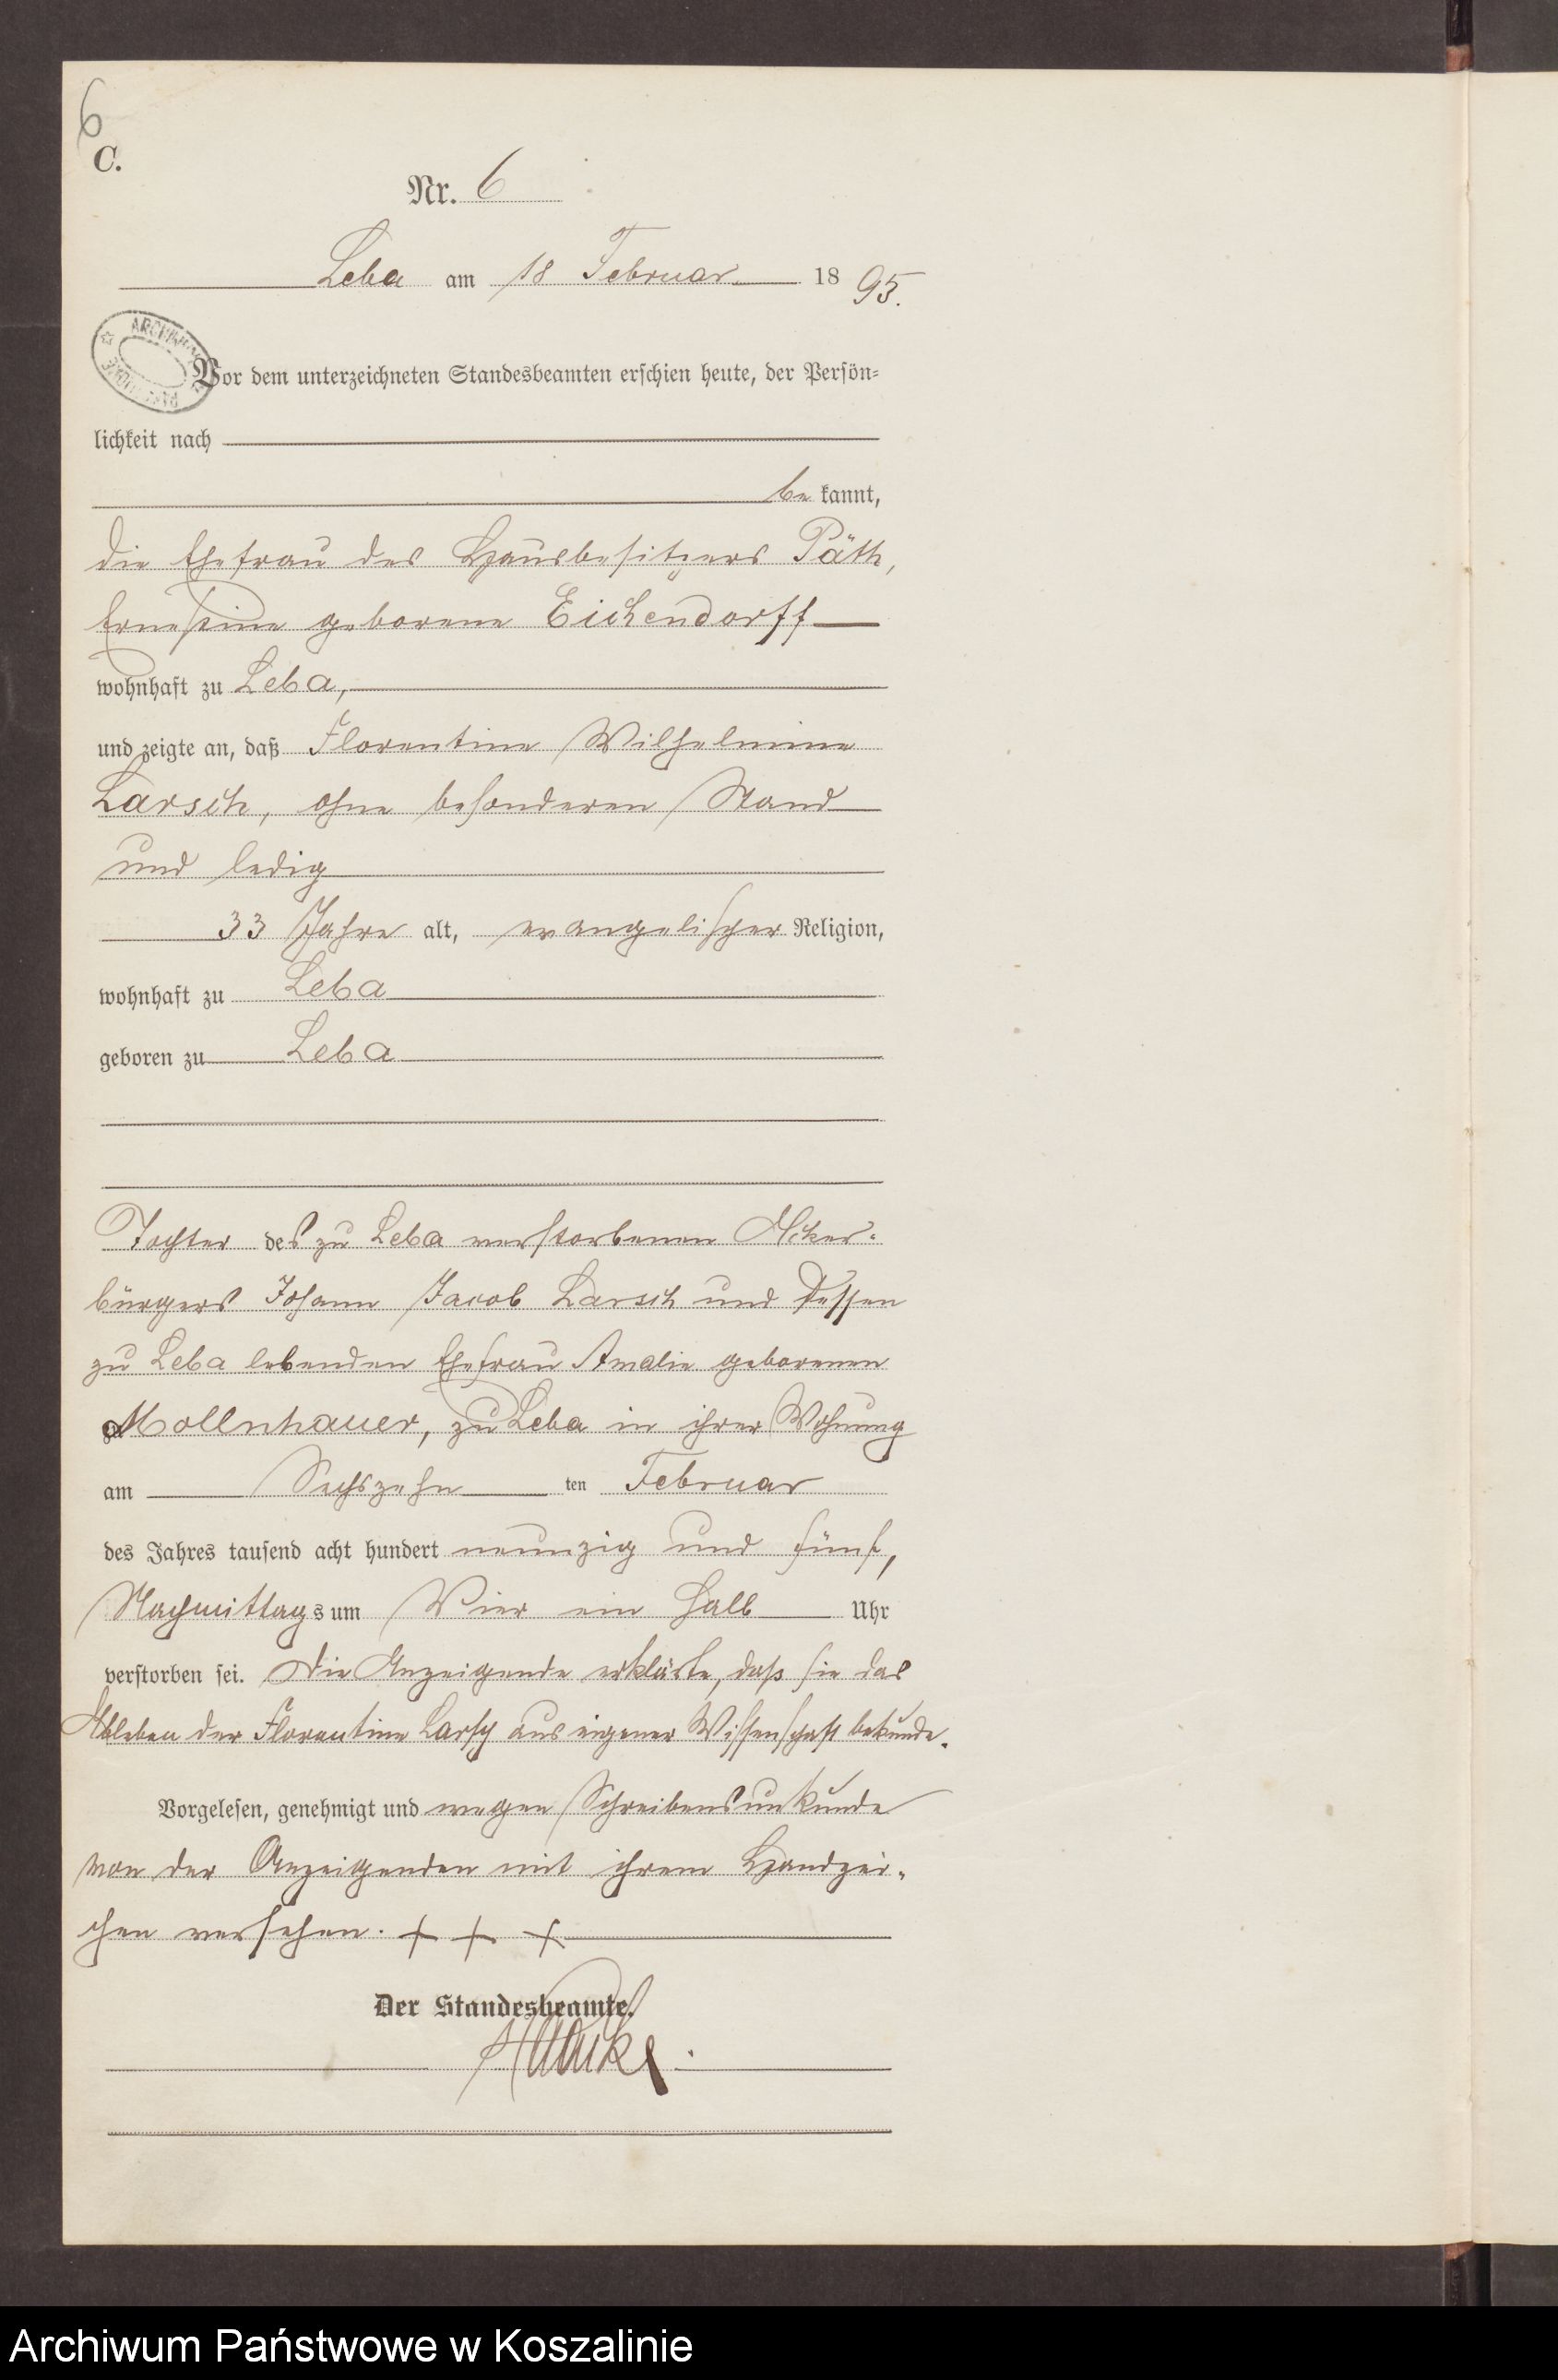 6
C.
Nr. 6
Leba am 18 Februar 18 95.
Vor dem unterzeichneten Standesbeamten erschien heute, der Persön-
lichkeit nach
be kannt,
die Ehefrau des Hausbesitzers Päth,
Ernestine geborene Eichendorff
wohnhaft zu Leba,
und zeigte an, daß Florentine Wilhelmine
Larsch, ohne besonderen Stand
und ledig
33 Jahre alt, evangelischer Religion,
wohnhaft zu Leba
geboren zu Leba
Tochter des zu Leba verstorbenen Acker-
bürgers Johann Jacob Larsch und dessen
zu Leba lebenden Ehefrau Amalie geborenen
Mollnhauer, zu Leba in ihrer Wohnung
am Sechszehn ten Februar
des Jahres tausend acht hundert neunzig und fünf,
Nachmittags um Vier ein halb Uhr
verstorben sei. Die Anzeigende erklärte, daß sie das
Ableben der Florentine Larsch aus eigener Wissenschaft bekunde.
Vorgelesen, genehmigt und wegen Schreibensunkunde
von der Anzeigenden mit ihrem Handzei-
chen versehen. + + +
Der Standesbeamte.
Archiwum Państwowe w Koszalinie